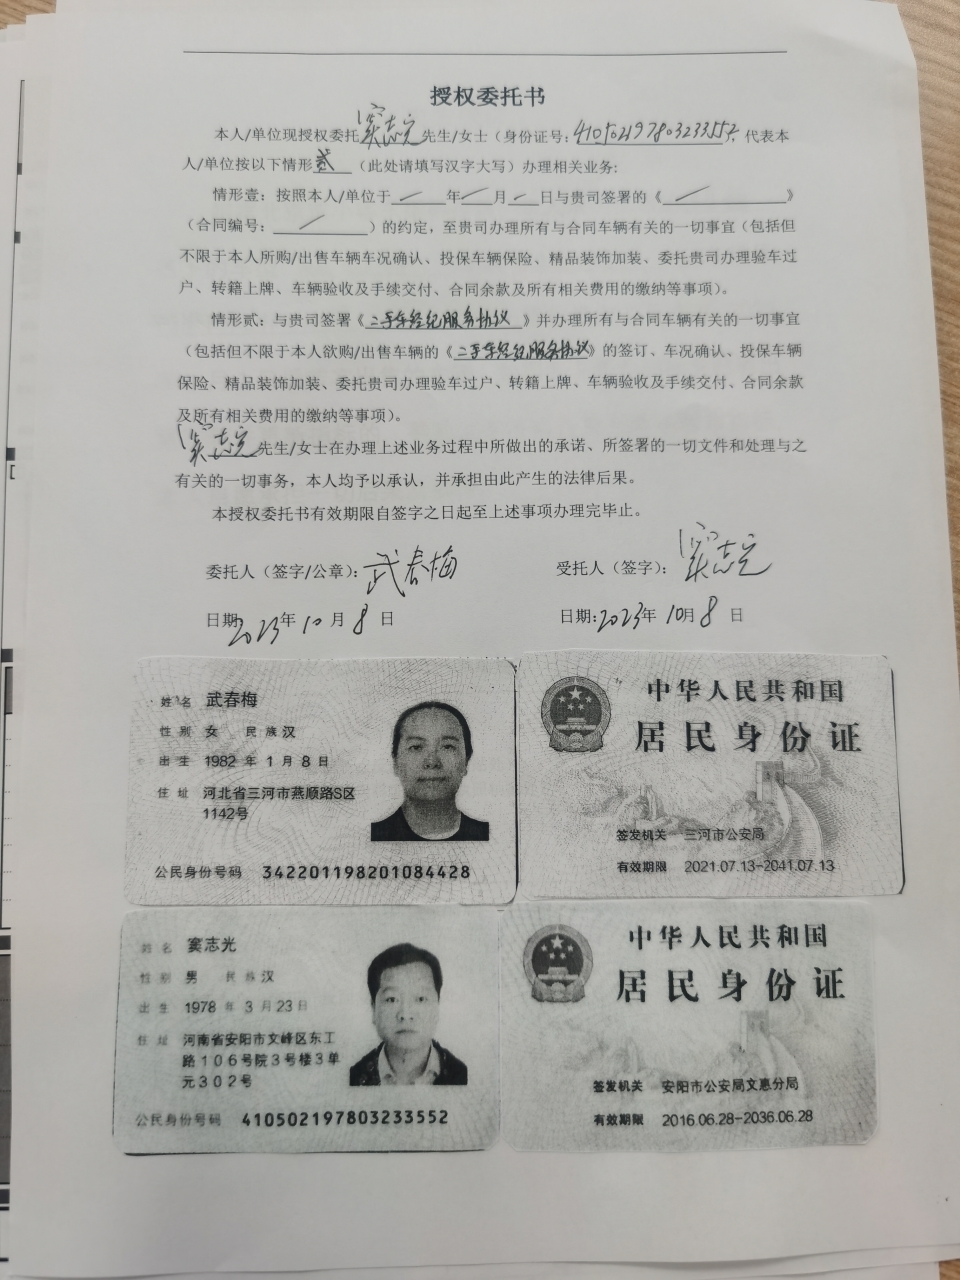 授权委托书
本人/单位现授权委托窦志光先生/女士（身份证号：410502197803233552，代表本
人/单位按以下情形贰（此处请填写汉字大写）办理相关业务：
情形壹：按照本人/单位于／年／月／日与贵司签署的《／》
（合同编号：／）的约定，至贵司办理所有与合同车辆有关的一切事宜（包括但
不限于本人所购/出售车辆车况确认、投保车辆保险、精品装饰加装、委托贵司办理验车过
户、转籍上牌、车辆验收及手续交付、合同余款及所有相关费用的缴纳等事项）。
情形贰：与贵司签署《二手车经纪服务协议》并办理所有与合同车辆有关的一切事宜
（包括但不限于本人欲购/出售车辆的《二手车经纪服务协议》的签订、车况确认、投保车辆
保险、精品装饰加装、委托贵司办理验车过户、转籍上牌、车辆验收及手续交付、合同余款
及所有相关费用的缴纳等事项）。
窦志光先生/女士在办理上述业务过程中所做出的承诺、所签署的一切文件和处理与之
有关的一切事务，本人均予以承认，并承担由此产生的法律后果。
本授权委托书有效期限自签字之日起至上述事项办理完毕止。
委托人（签字/公章）：武春梅 受托人（签字）：窦志光
日期2023年10月8日 日期：2023年10月8日
姓名 武春梅
性别 女 民族 汉
出生 1982年1月8日
住址 河北省三河市燕顺路S区
1142号
公民身份号码 342201198201084428
中华人民共和国
居民身份证
签发机关 三河市公安局
有效期限 2021.07.13-2041.07.13
姓名 窦志光
性别 男 民族 汉
出生 1978年3月23日
住址 河南省安阳市文峰区东工
路106号院3号楼3单
元302号
公民身份号码 410502197803233552
中华人民共和国
居民身份证
签发机关 安阳市公安局文惠分局
有效期限 2016.06.28-2036.06.28